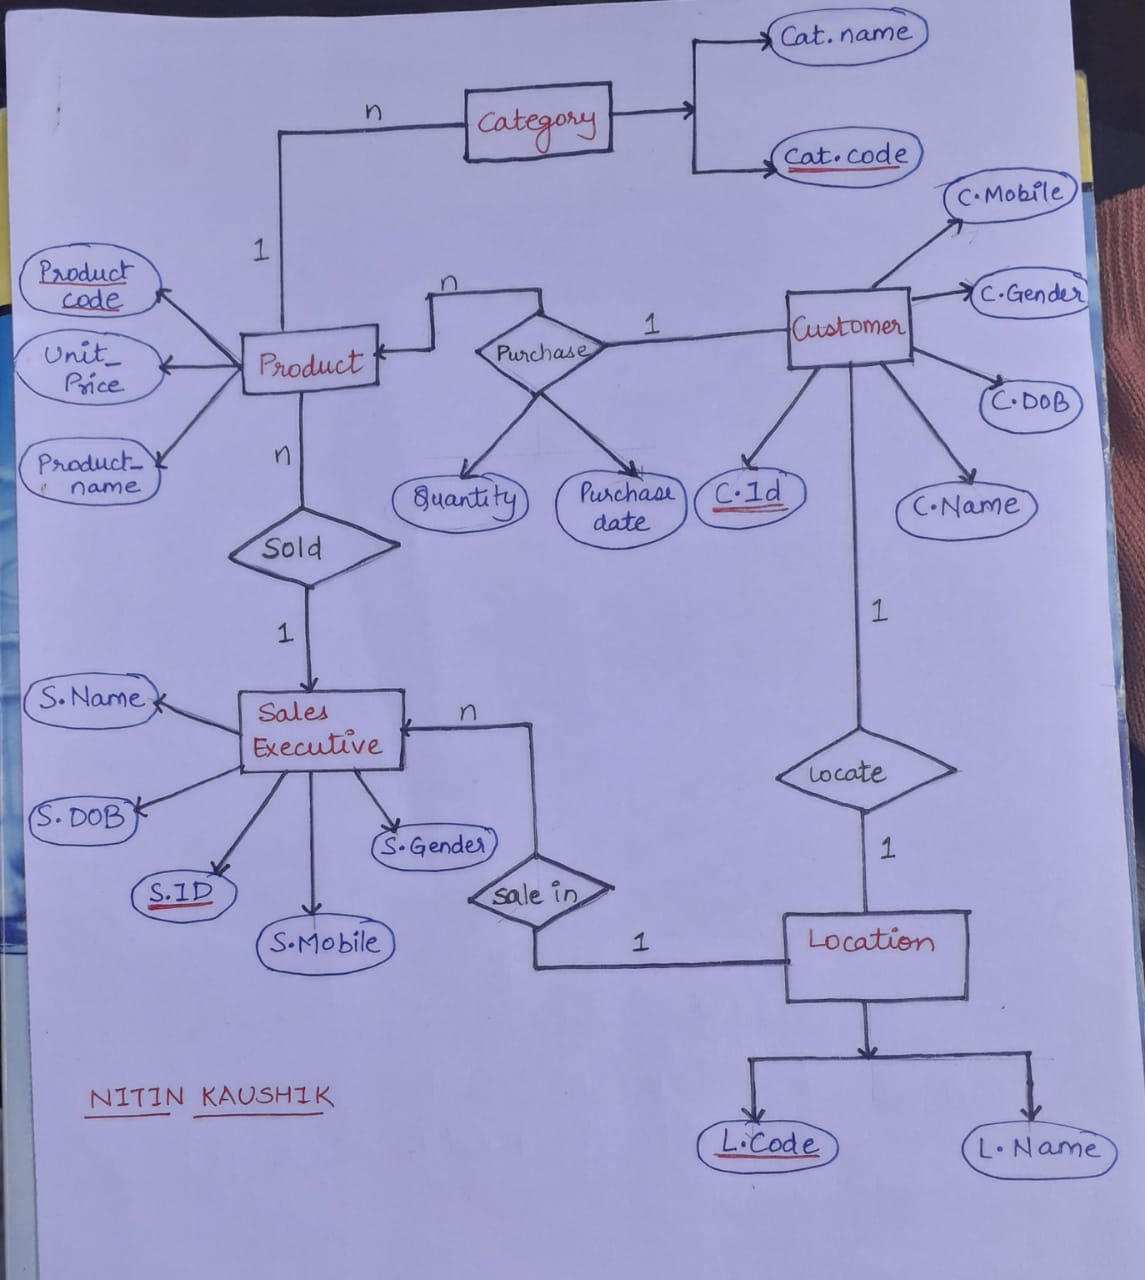 Cat.name
n
Category
Cat.code
C.Mobile
1
Product
code
n
C.Gender
1
Customer
Unit_
Price
Product
Purchase
C.DOB
n
Product_
name
Quantity
Purchase
date
C.Id
C.Name
Sold
1
1
S.Name
Sales
Executive
n
Locate
S.DOB
S.Gender
1
S.ID
Sale in
S.Mobile
1
Location
NITIN KAUSHIK
L.Code
L.Name